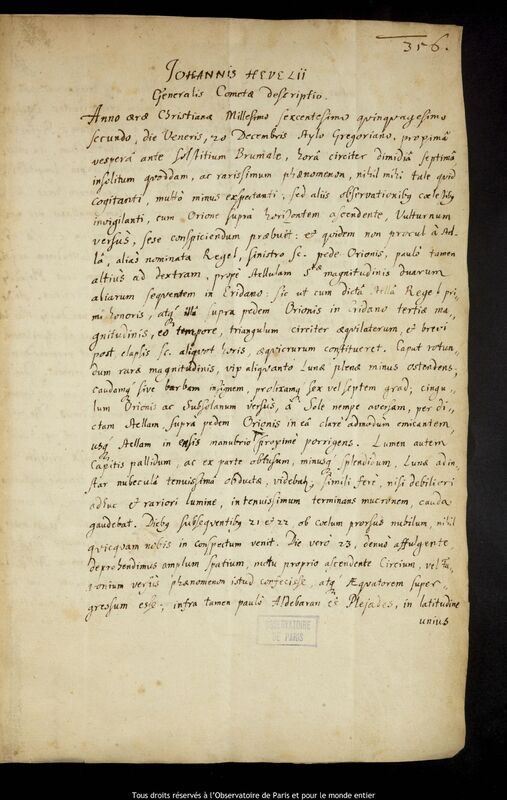 356.
JOHANNIS HEVELII
Generalis Cometæ descriptio.
Anno æræ Christianæ Millesimo sexcentesimo quinquagesimo
secundo, die Veneris, 20 Decembris Stylo Gregoriano, propimã
vesperâ ante Solstitium Brumale, horâ circiter dimidiâ septimâ
insolitum quoddam, ac rarissimum phænomenon, nihil mihi tale quid
cogitanti, multò minus expectanti, sed aliis observationibꝫ cœlestibꝫ
invigilanti, cum Orione supra horizontem ascendente, Vulturnum
versùs, sese conspiciendum præbuit: et quidem non procul à Stel„
lâ, aliàs nominata Regel, sinistro sc. pede Orionis, paulò tamen
altiùs ad dextram, propè stellulam 5tæ magnitudinis duarum
aliarum seqventem in Eridano: sic ut cum dictâ stellâ Regel pri„
mi honoris, atqꝫ illâ supra pedem Orionis in Eridano tertiæ ma„
gnitudinis, eo tempore, triangulum circiter æqvilaterum, et brevi
post elapsis sc. aliqvot horis, æqvicrurum constitueret. Caput rotun„
dum raræ magnitudinis, vix aliquanto Lunâ plenâ minus ostendens,
caudamqꝫ sive barbam insignem, prolixamqꝫ sex vel septem grad; cingu„
lum Orionis ac Subsolanum versùs, à Sole nempe aversam, per di„
ctam stellam supra pedem Orionis in eâ clarè admodum emicantem,
usqꝫ stellam in ensis manubrio propimè porrigens. Lumen autem
Capitis pallidum, ac ex parte obtusum, minusqꝫ splendidum, Lunæ adin„
star nubeculâ tenuissimâ obductæ, videbatꝫ; simili ferè, nisi debiliori
adhuc et rariori lumine, in tenuissimum terminans mucronem, cauda
gaudebat. Diebꝫ subseqventibꝫ 21 et 22 ob cœlum prorsus nubilum, nihil
qvicqvam nobis in conspectum venit. Die verò 23, denuò affulgente,
deprehendimus amplum spatium, motu proprio ascendente Circium, vel
versùs phænomenon istud confecisse, atqꝫ Æqvatorem super„
gressum esse; infra tamen paulò Aldebaran et Plejades, in latitudine
unius
OBSERVATOIRE
DE PARIS
Tous droits réservés à l'Observatoire de Paris et pour le monde entier